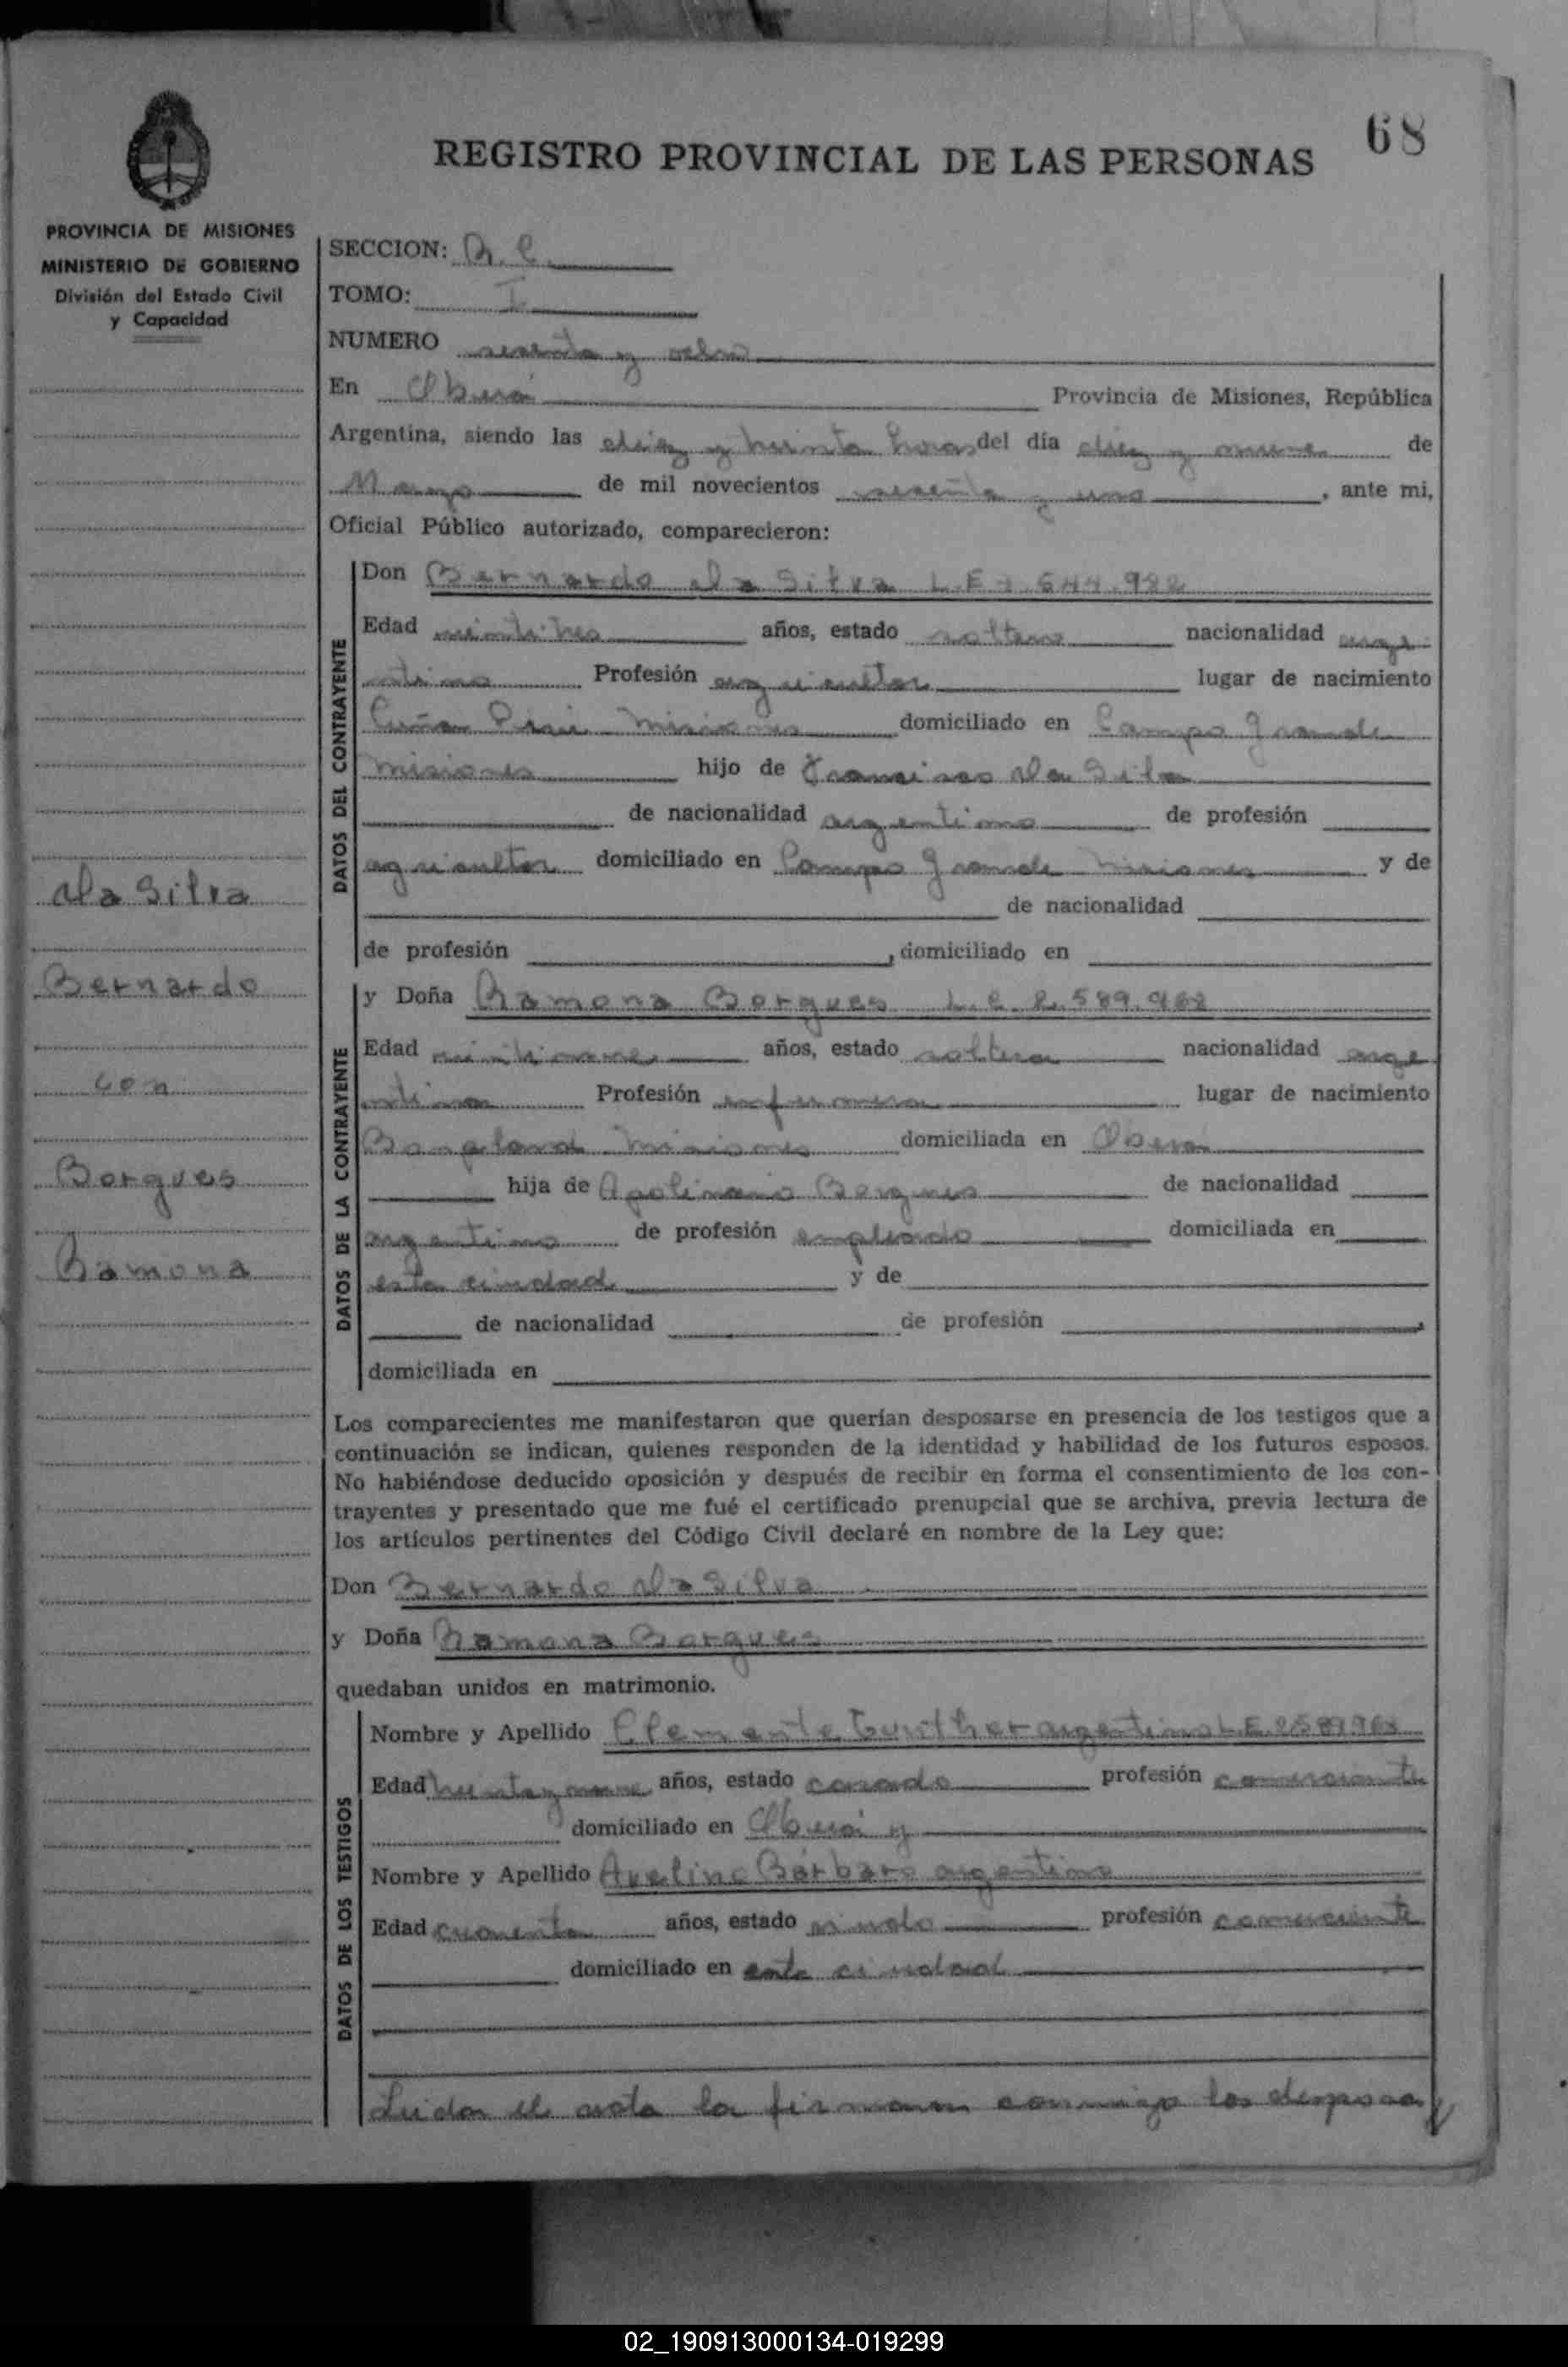 68
REGISTRO PROVINCIAL DE LAS PERSONAS
PROVINCIA DE MISIONES
MINISTERIO DE GOBIERNO
División del Estado Civil
y Capacidad
SECCION: R. C.
TOMO: I
NUMERO sesenta y ocho
En Oberá Provincia de Misiones, República
Argentina, siendo las diez y treinta horas del día diez y nueve de
Mayo de mil novecientos sesenta y uno, ante mi,
Oficial Público autorizado, comparecieron:
DATOS DEL CONTRAYENTE
Don Bernardo da Silva L.E 7.544.922
Edad veintitres años, estado soltero nacionalidad arge
ntino Profesión agricultor lugar de nacimiento
Cuña Pirú Misiones domiciliado en Campo Grande
Misiones hijo de Francisco da Silva
de nacionalidad argentino de profesión
agricultor domiciliado en Campo Grande Misiones y de
de nacionalidad
de profesión , domiciliado en
da Silva
Bernardo
con
Borgues
Ramona
DATOS DE LA CONTRAYENTE
y Doña Ramona Borgues L.C. 2.589.968
Edad veintinueve años, estado soltera nacionalidad arge
ntina Profesión enfermera lugar de nacimiento
Bonpland Misiones domiciliada en Oberá
hija de Apolinario Borgues de nacionalidad
argentino de profesión empleado domiciliada en
esta ciudad y de
de nacionalidad de profesión ,
domiciliada en
Los comparecientes me manifestaron que querían desposarse en presencia de los testigos que a
continuación se indican, quienes responden de la identidad y habilidad de los futuros esposos.
No habiéndose deducido oposición y después de recibir en forma el consentimiento de los con-
trayentes y presentado que me fué el certificado prenupcial que se archiva, previa lectura de
los artículos pertinentes del Código Civil declaré en nombre de la Ley que:
Don Bernardo da Silva
y Doña Ramona Borgues
quedaban unidos en matrimonio.
DATOS DE LOS TESTIGOS
Nombre y Apellido Clemente Gunther argentino L.E. 2589968
Edad treinta y nueve años, estado casado profesión comerciante
domiciliado en Oberá y
Nombre y Apellido Avelino Bárbaro argentino
Edad cuarenta años, estado viudo profesión comerciante
domiciliado en esta ciudad
Leida el acta la firman conmigo los desposa
02_190913000134-019299